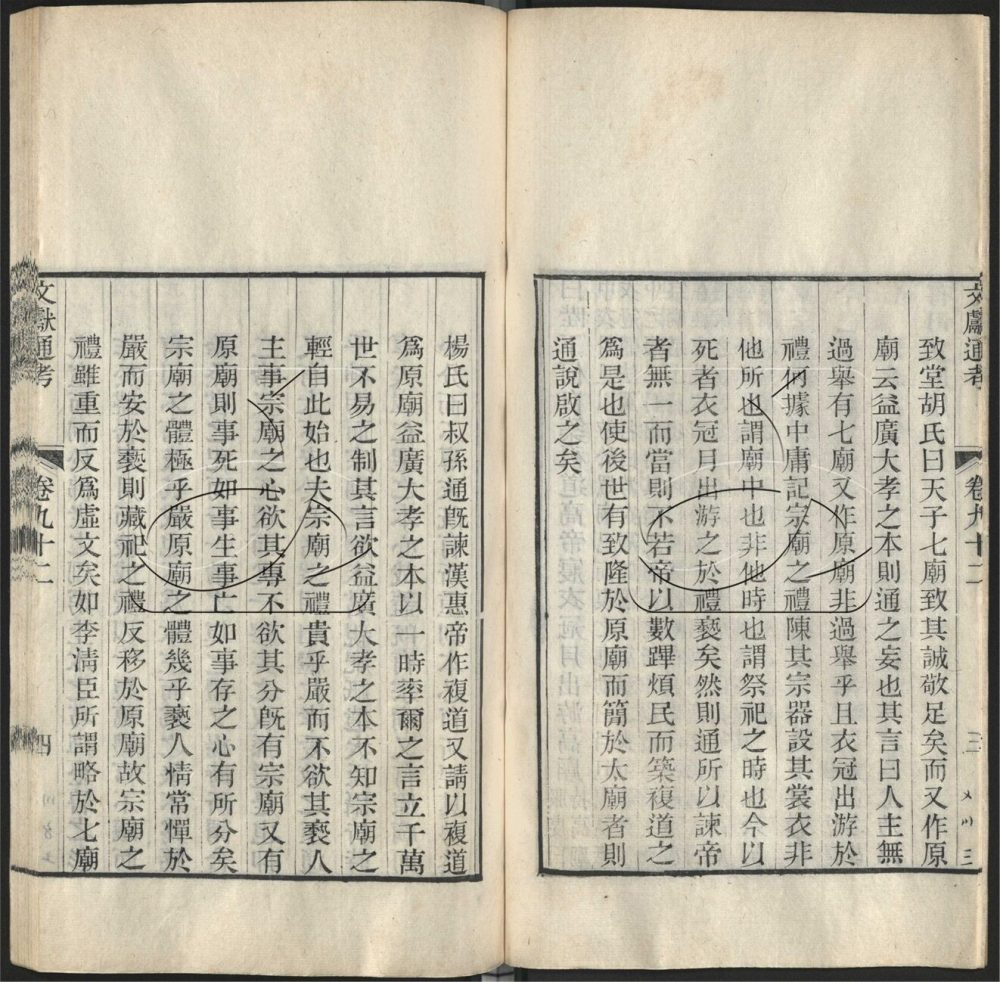 文獻通考
卷九十二
三
致堂胡氏曰天子七廟致其誠敬足矣而又作原
廟云益廣大孝之本則通之妄也其言曰人主無
過舉有七廟又作原廟非過舉乎且衣冠出游於
禮何據中庸記宗廟之禮陳其宗器設其裳衣非
他所也謂廟中也非他時也謂祭祀之時也今以
死者衣冠月出游之於禮褻矣然則通所以諫帝
者無一而當則不若帝以數蹕煩民而築複道之
爲是也使後世有致隆於原廟而簡於太廟者則
通說啟之矣
楊氏曰叔孫通旣諫漢惠帝作複道又請以複道
爲原廟益廣大孝之本以一時率爾之言立千萬
世不易之制其言欲益廣大孝之本不知宗廟之
輕自此始也夫宗廟之禮貴乎嚴而不欲其褻人
主事宗廟之心欲其專不欲其分旣有宗廟又有
原廟則事死如事生事亡如事存之心有所分矣
宗廟之體極乎嚴原廟之體幾乎褻人情常憚於
嚴而安於褻則藏祀之禮反移於原廟故宗廟之
禮雖重而反爲虛文矣如李淸臣所謂略於七廟
文獻通考
卷九十二
四